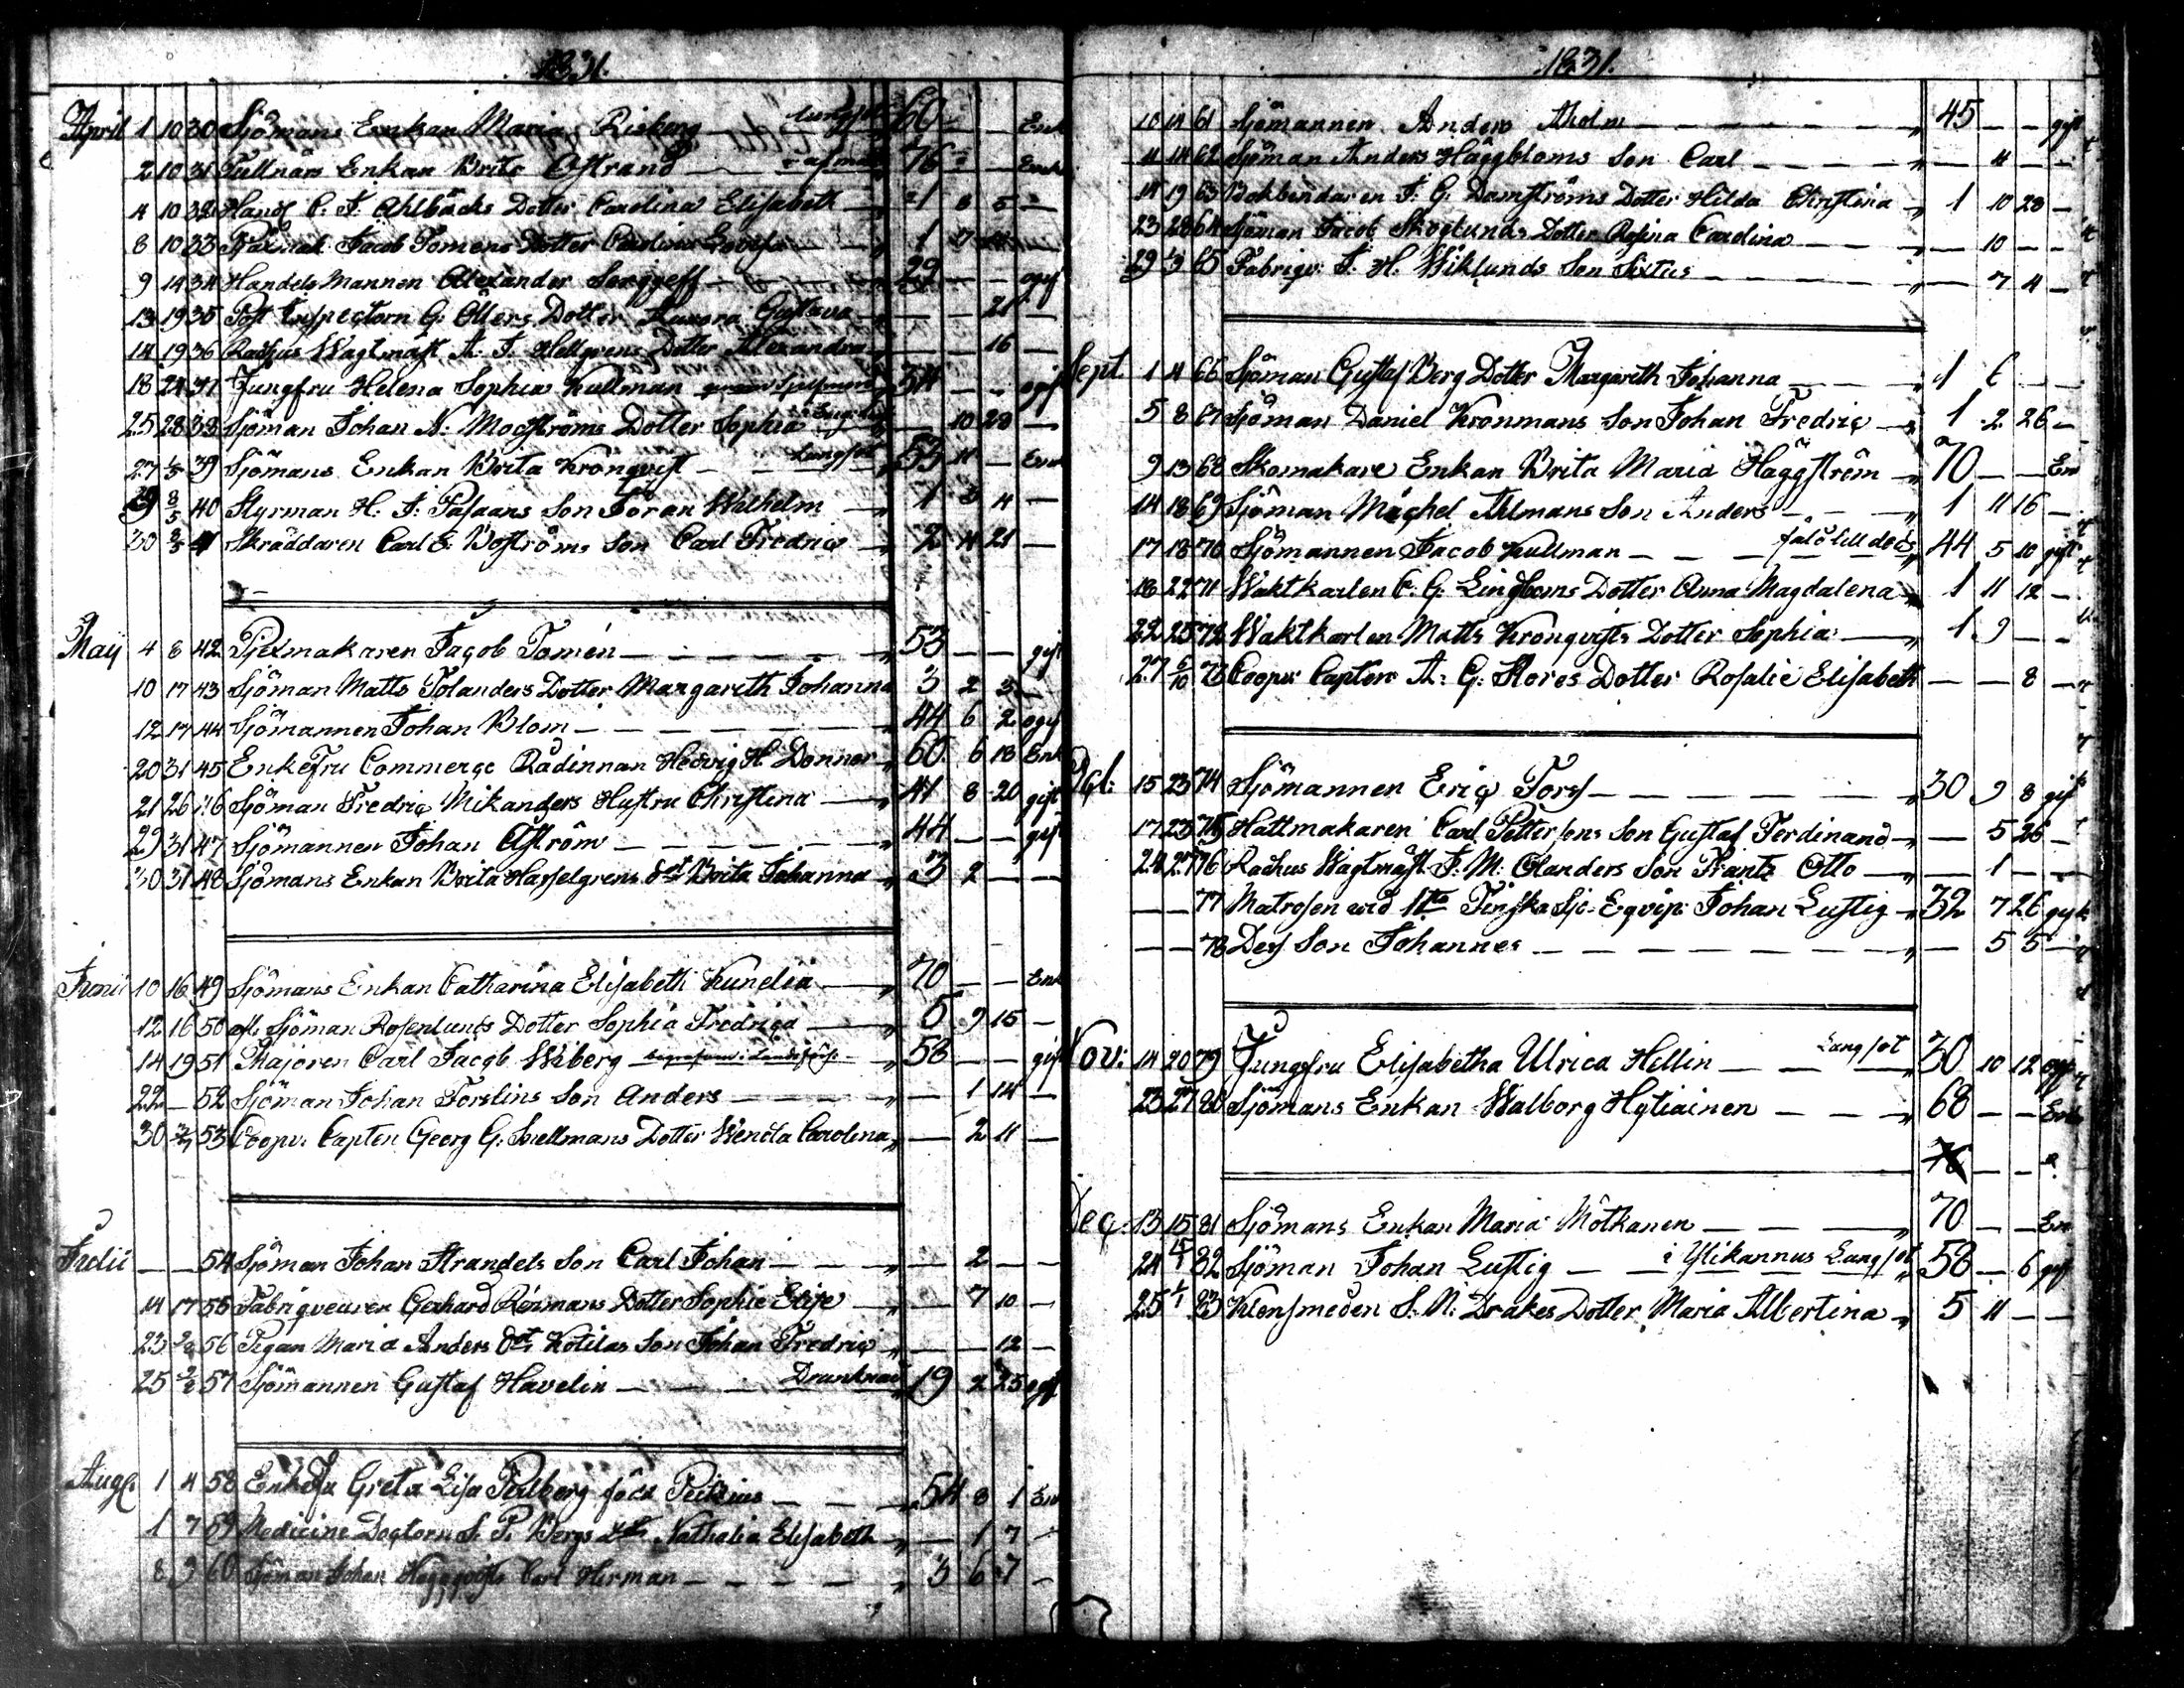 1831.
April 1 10 30 Sjömans Enkan Maria Risberg Lungsot 60 — — Enk
2 10 31 Tullnärs Enkan Brita Astrand 76 — — Enk
4 10 32 Handl C. J. Ahlbäcks Dotter Carolina Elisabeth 1 8 5 —
8 10 33 Jacob Tomens Dotter Carolina Lovisa 1 7
9 14 34 Handels Mannen Alexander 29 — — ogif
13 19 35 Post Inspectorn G. Ollers Dotter Gustava — — 21 —
14 19 36 Rådhus Wagtmäst A. J. Hellgrens Dotter Alexandra — — 16 —
18 24 37 Jungfru Helena Sophia Kullman 34 — — ogif
25 28 38 Sjöman Johan N. Moströms Dotter Sophia — 10 28 —
27 1/5 39 Sjömans Enkan Brita Krönqvist Lungsot 53 11 — Enk
29 3/5 40 Styrman H. J. Son Wilhelm 1 3 4 —
30 3/5 41 Skräddaren Carl E. Boströms Son Carl Fredric 2 11 21 —
Maij 4 8 42 Spelmakaren Jacob Tomén 53 — — gift
10 17 43 Sjöman Matts Tolanders Dotter Margareth Johanna 3 2 3 —
12 17 44 Sjömannen Johan Blom 44 6 2 ogif
20 31 45 Enkefru Commerce Rådinnan Hedvig H. Donner 60 6 18 Enk
21 26 46 Sjöman Fredric Mikanders Hustru Christina 41 8 20 gift
29 31 47 Sjömannen Johan Aström 44 — — gift
30 31 48 Sjömans Enkan Brita Hasselgrens dot Brita Johanna 3 2 — —
Junii 10 16 49 Sjömans Enkan Catharina Elisabeth Kunelia 70 — — Enk
12 16 50 afl. Sjöman Rosenlunds Dotter Sophia Fredrica 5 9 15 —
14 19 51 Majoren Carl Jacob Wiberg 58 — — gif
22 — 52 Sjöman Johan Forslins Son Anders — 1 14 —
30 3/7 53 Coopv. Capten Georg G. Snellmans Dotter Wenda Carolina — 2 11 —
Julii — — 54 Sjöman Johan Strandels Son Carl Johan — 2 — —
14 17 55 Fabriqveuren Gerhard Dotter Sophie Elise — 7 10 —
23 2/8 56 Pigan Maria Anders dotr Kotilas Son Johan Fredric — — 12 —
25 2/8 57 Sjömannen Gustaf Havelin Drunknad 19 2 25 ogif
Aug. 1 4 58 Enkefru Greta Lisa född 54 8 1 En
1 7 59 Medicine Doctorn S. P. Bergs dotr Nathalia Elisabeth — 1 7 —
8 9 60 Sjöman Johan Carl Herman 3 6 7 —
1831.
10 14 61 Sjömannen Anders Aholm 45 — — gif
11 14 62 Sjöman Anders Häggbloms Son Carl — 4 — —
14 19 63 Bokbindaren J. G. Damströms Dotter Hilda Christina 1 10 28 —
23 28 64 Sjöman Jacob Skoglunds Dotter Rosina Carolina — 10 — —
29 1/9 65 Fabriqv. J. H. Wiklunds Son Sixtus — 7 4 —
Sept. 1 4 66 Sjöman Gustaf Berg Dotter Margareth Johanna 1 6 — —
5 8 67 Sjöman Daniel Kronmans Son Johan Fredric 1 2 26 —
9 13 68 Skomakare Enkan Brita Maria Häggström 70 — — En
14 18 69 Sjöman Michel Ahlmans Son Anders 1 11 16 —
17 18 70 Sjömannen Jacob Kullman föll till döds 44 5 10 gift
18 22 71 Waktkarlen C. G. Lingboms Dotter Anna Magdalena 1 11 12 —
22 25 72 Waktkarlen Matts Kronqvists Dotter Sophia 1 9 — —
27 6/10 73 Coopv. Capten A. G. Dotter Rosalie Elisabeth — — 8 —
Oct. 15 23 74 Sjömannen Eric Forss 30 9 8 gif
17 23 75 Hattmakaren Carl Pettersons Son Gustaf Ferdinand — 5 26 —
24 27 76 Rådhus Wagtmäst. J. M. Olanders Son Frantz Otto — 1 — —
— — 77 Matrosen wid 1sta Finska Sjö-Eqvip: Johan Lustig 32 7 26 gif
— — 78 Dess Son Johannes — 5 5 —
Nov: 14 20 79 Jungfru Elisabetha Ulrica Hellin Lungsot 30 10 12 ogif
23 27 80 Sjömans Enkan Walborg Hytiäinen 68 — — Enk
Dec: 13 15 81 Sjömans Enkan Maria Mötkanen 70 — — En
24 82 Sjöman Johan Lustig i Ylikannus Lungsot 58 — 6 gif
25 1/1 83 Klensmeden S. N. Drakes Dotter Maria Albertina 5 11 — —